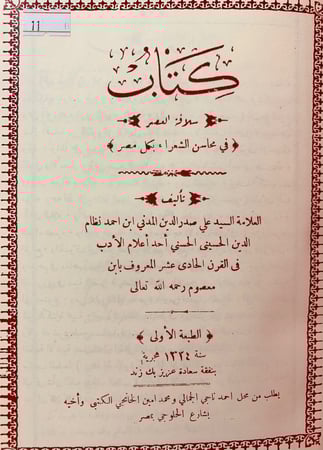 11
كتاب
سلافة العصر
﴿ في محاسن الشعراء بكل مصر ﴾
تأليف
العلامة السيد علي صدر الدين المدني ابن احمد نظام
الدين الحسيني الحسني أحد أعلام الأدب
في القرن الحادى عشر المعروف بابن
معصوم رحمه الله تعالى
﴿ الطبعة الأولى ﴾
سنة ١٣٢٤ هجرية
بنفقة سعادة عزيز بك زند
يطلب من محل احمد ناجي الجمالي ومحمد امين الخانجي الكتبي وأخيه
بشارع الحلوجي بمصر